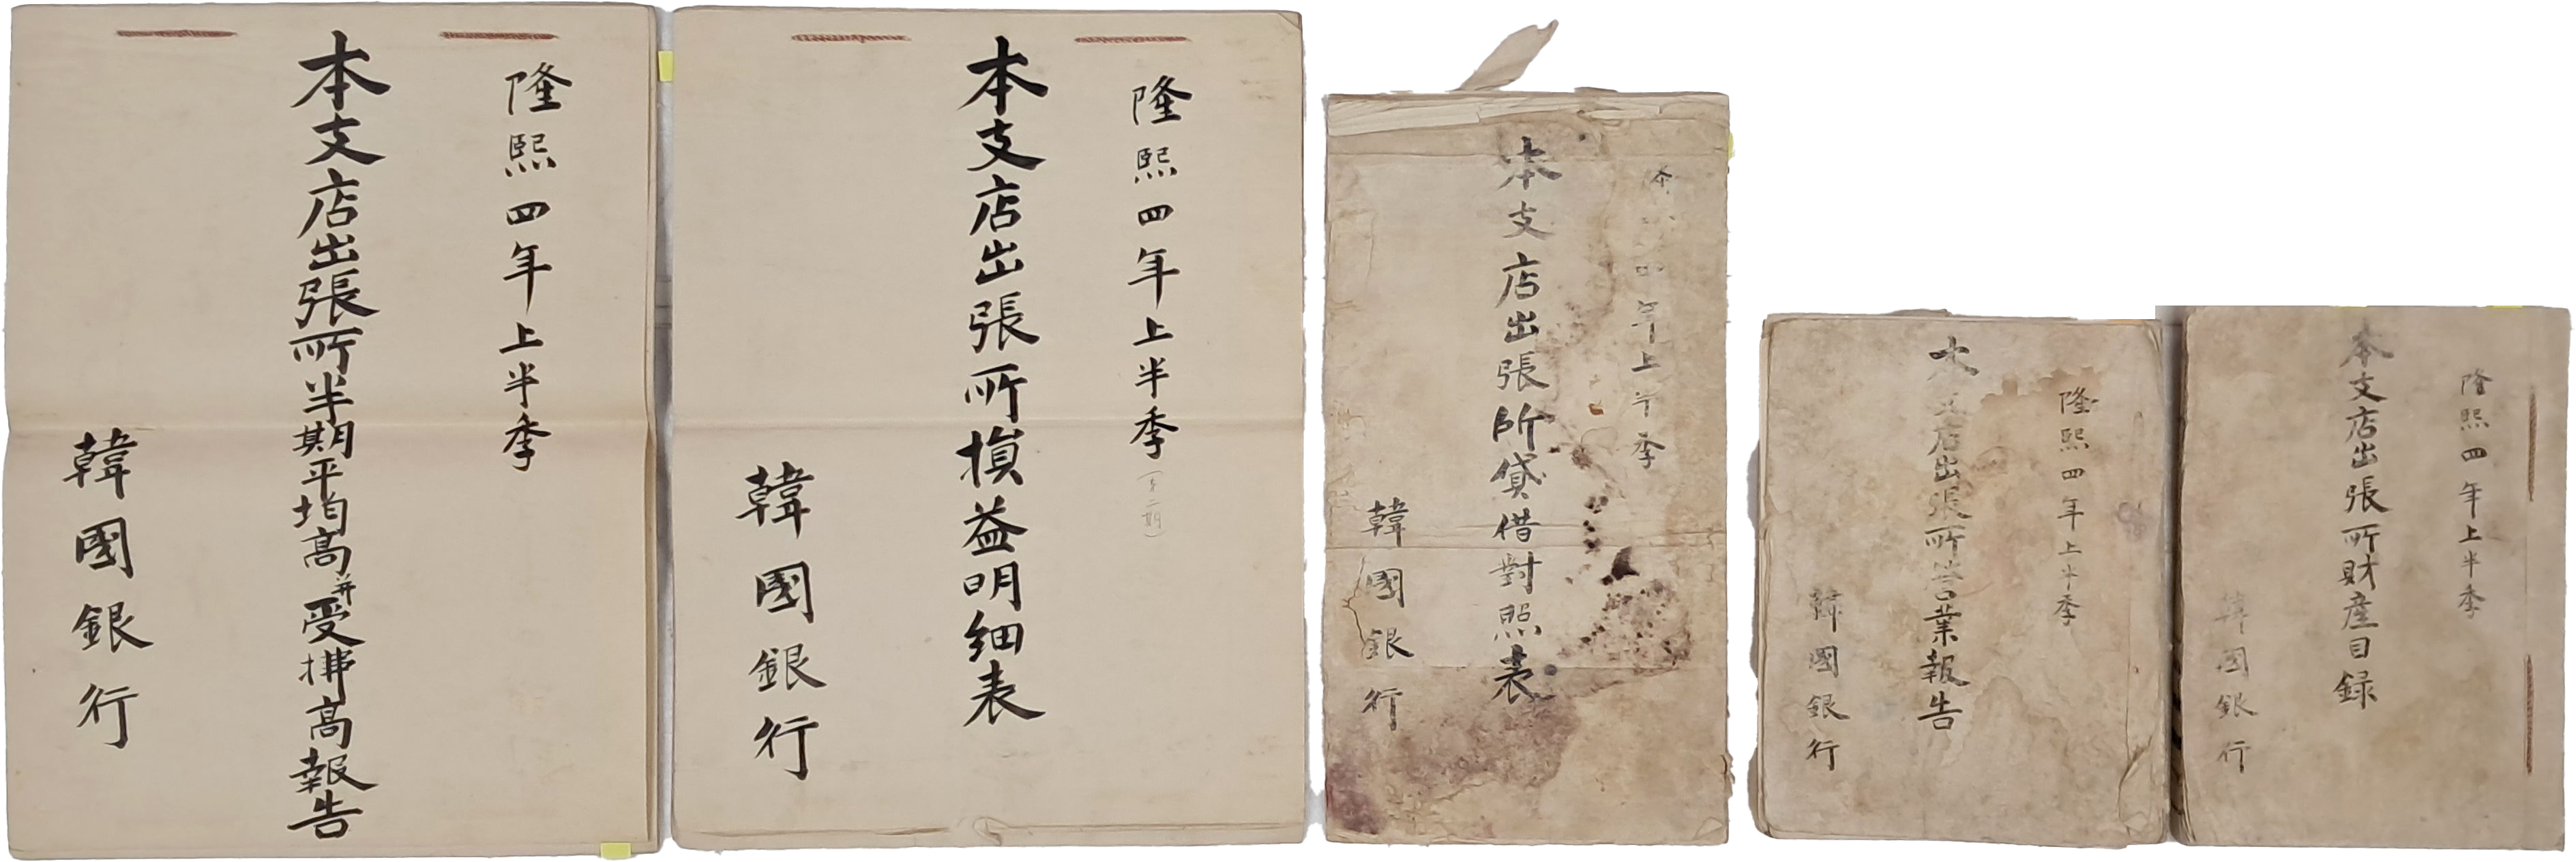 隆熙四年上半季
本支店出張所半期平均高并受拂高報告
韓國銀行
隆熙四年上半季
本支店出張所損益明細表
韓國銀行
年上半季
本支店出張所貸借對照表
韓國銀行
隆熙四年上半季
本支店出張所営業報告
韓國銀行
隆熙四年上半季
本支店出張所財産目録
韓國銀行